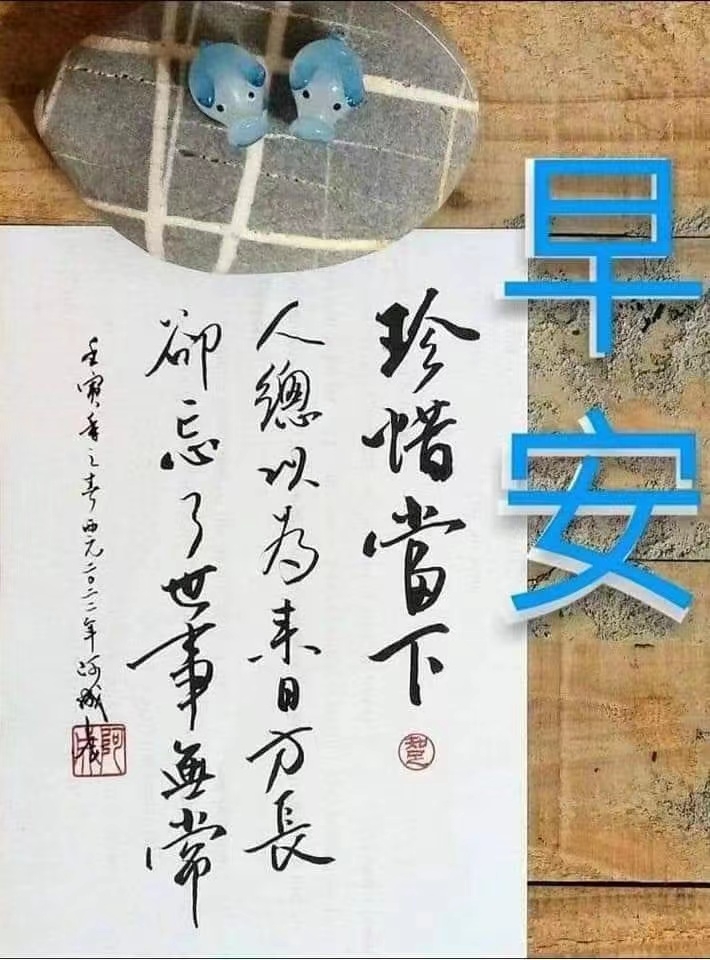 早安
珍惜當下
人總以為來日方長
卻忘了世事無常
壬寅年之春西元二〇二二年阿成